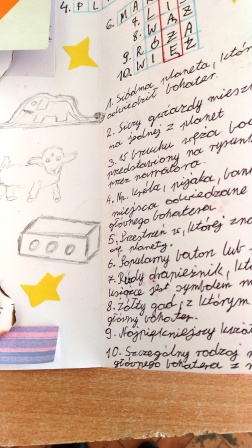 4. P L
6. M A R
7. L I
8. W Ą Ż
9. R Ó Ż A
10. W I Ę Ź
1. Siódma planeta, któr
odwiedził bohater.
2. Siny gwiazdy miesz
na jednej z planet
3. W brzuchu węża boa
przedstawiony na rysun
przez narratora.
4. Np. króla, pijaka, ban
miejsca odwiedzane
głównego bohatera.
5. Przestrzeń w, której zna
się planety.
6. Popularny baton lub
7. Rudy drapieżnik, któ
księcia jest symbolem m
8. Żółty gad, z którym
główny bohater.
9. Najpiękniejszy kwiat
10. Szczególny rodzaj
głównego bohatera z